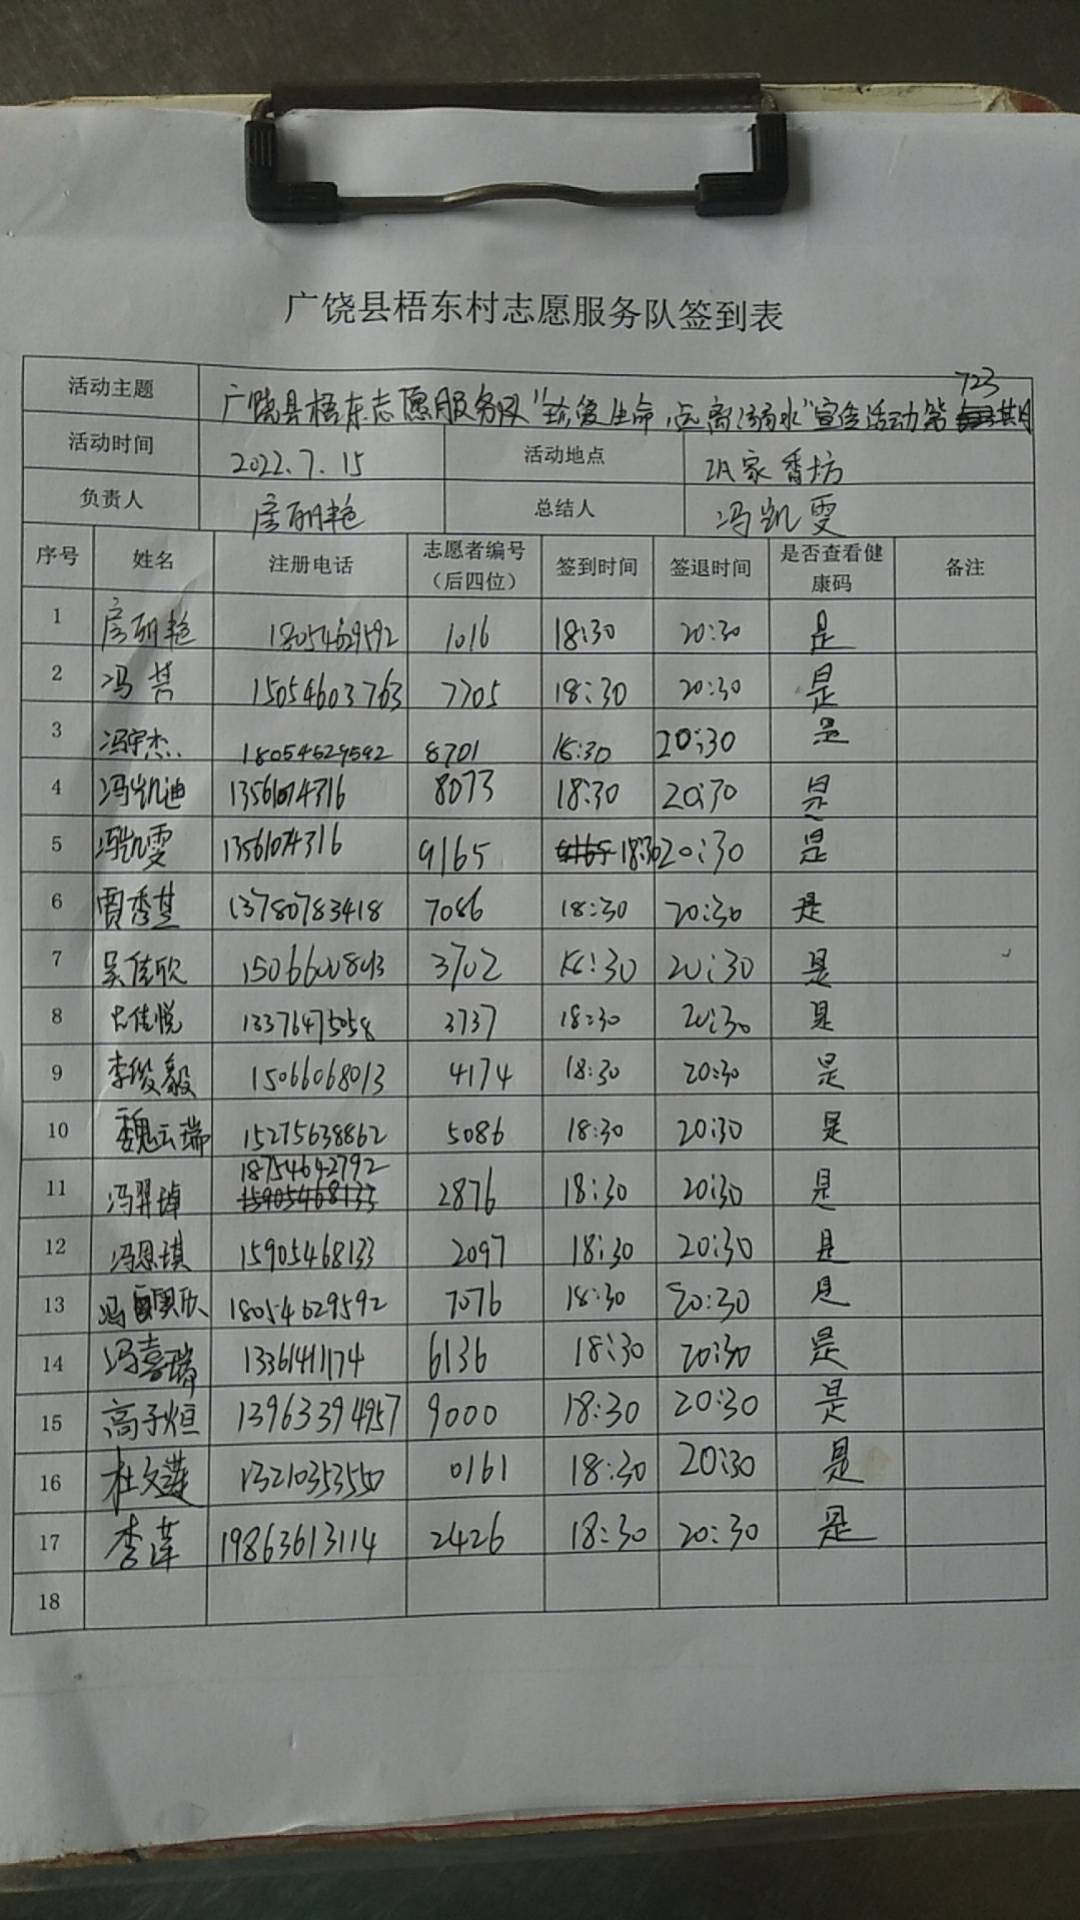 广饶县梧东村志愿服务队签到表
活动主题 广饶县梧东志愿服务队"珍爱生命,远离溺水"宣传活动第723期
活动时间 2022.7.15 活动地点 家香坊
负责人 房丽艳 总结人 冯凯雯
序号 姓名 注册电话 志愿者编号（后四位） 签到时间 签退时间 是否查看健康码 备注
1 房丽艳 18054629592 1016 18:30 20:30 是
2 冯 15054603763 7705 18:30 20:30 是
3 冯宇杰 18054629592 8701 18:30 20:30 是
4 冯凯迪 13561074316 8073 18:30 20:30 是
5 冯凯雯 13561074316 9165 18:30 20:30 是
6 贾秀芝 13780783418 7086 18:30 20:30 是
7 吴佳欣 3702 18:30 20:30 是
8 佳悦 13376475058 3737 18:30 20:30 是
9 李俊毅 15066068013 4174 18:30 20:30 是
10 魏云瑞 15275638862 5086 18:30 20:30 是
11 冯羿 18754642792 2876 18:30 20:30 是
12 冯恩琪 15905468133 2097 18:30 20:30 是
13 冯 欣 18054629592 7076 18:30 20:30 是
14 冯喜瑞 13361411174 6136 18:30 20:30 是
15 高子烜 13963394957 9000 18:30 20:30 是
16 杜文莲 13210353550 0161 18:30 20:30 是
17 李莲 19863613114 2426 18:30 20:30 是
18